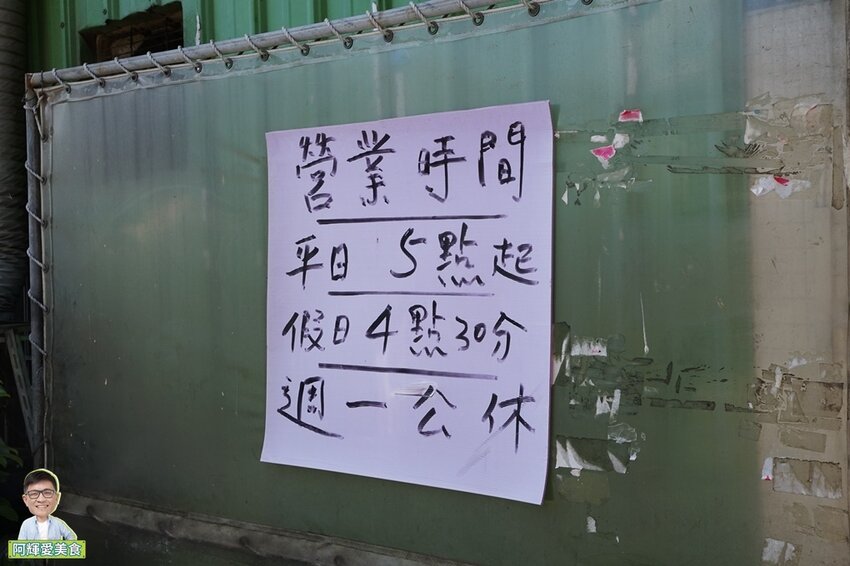 營業時間
平日 5點起
假日4點30分
週一公休
阿輝愛美食